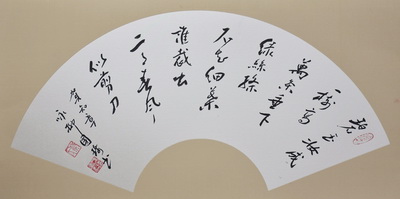 碧
玉妝成
一樹高
萬条垂下
綠絲絛
不知細葉
誰裁出
二月春風
似剪刀
賀知章
詠柳